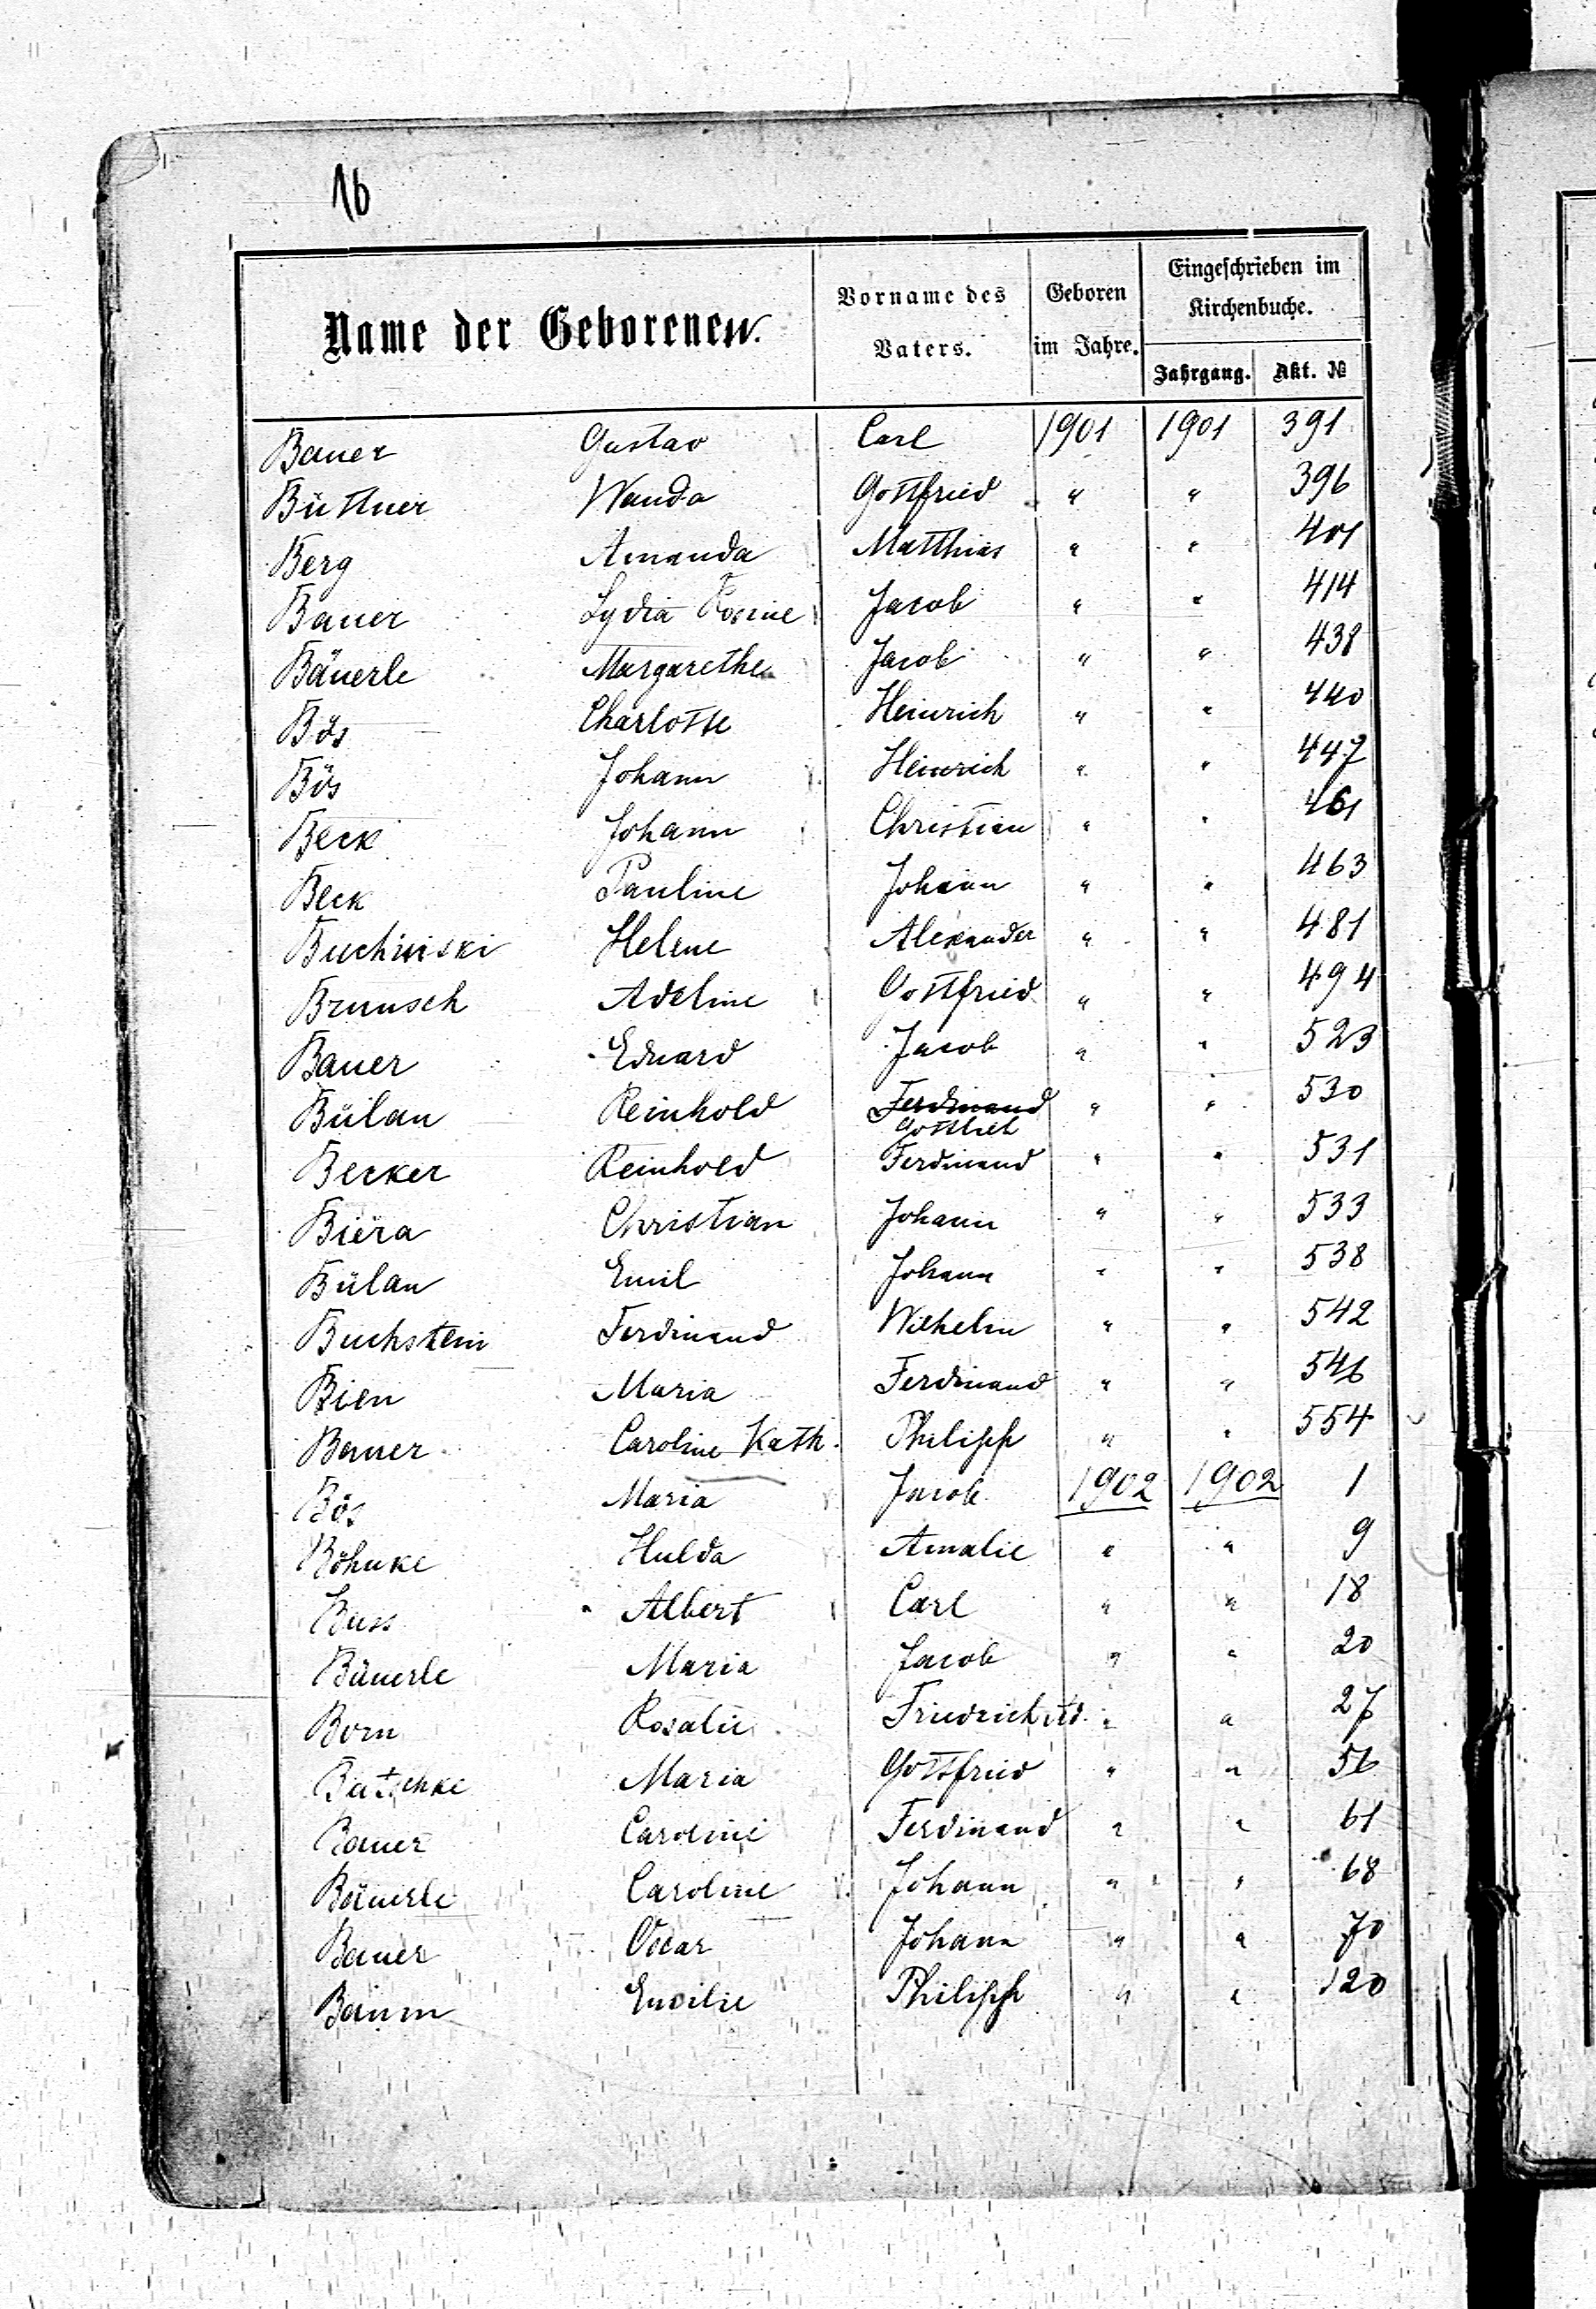 16
Name der Geborenen.
Vorname des Vaters.
Geboren im Jahre.
Eingeschrieben im Kirchenbuche.
Jahrgang. Akt. №
Bauer Gustav Carl 1901 1901 391
Büttner Wanda Gottfried " " 396
Berg Amanda Matthias " " 401
Bauer Lydia Rosine Jacob " " 414
Bäuerle Margarethe Jacob " " 438
Bös Charlotte Heinrich " " 440
Bös Johann Heinrich " " 447
Beck Johann Christian " " 461
Beck Pauline Johann " " 463
Buchinski Helene Alexander " " 481
Brunsch Adeline Gottfried " " 494
Bauer Eduard Jacob " " 523
Bülau Reinhold Ferdinand " " 530
Gottlieb
Becker Reinhold Ferdinand " " 531
Biera Christian Johann " " 533
Bülau Emil Johann " " 538
Buchstein Ferdinand Wilhelm " " 542
Bien Maria Ferdinand " " 546
Bauer Caroline Kath. Philipp " " 554
Bös Maria Jacob 1902 1902 1
Böhnke Hulda Amalie " " 9
Buss Albert Carl " " 18
Bäuerle Maria Jacob " " 20
Born Rosalie Friedrich " " 27
Batschke Maria Gottfried " " 56
Bauer Caroline Ferdinand " " 61
Bäuerle Caroline Johann " " 68
Bauer Oscar Johann " " 70
Baum Emilie Philipp " " 120